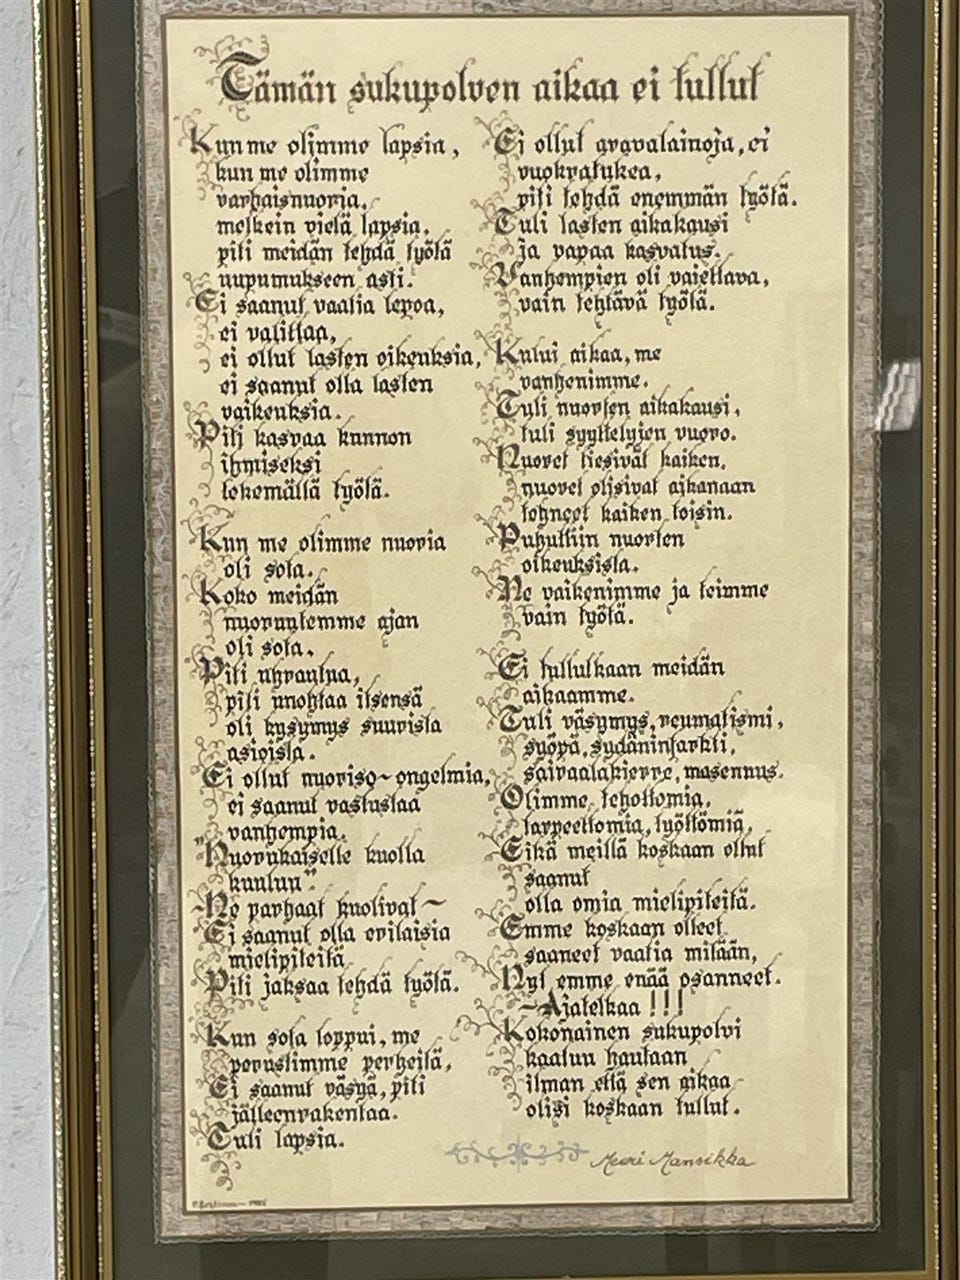 Tämän sukupolven aikaa ei tullut
Kun me olimme lapsia,
kun me olimme
varhaisnuoria,
melkein vielä lapsia,
piti meidän tehdä työtä
uupumukseen asti.
Ei saanut vaatia lepoa,
ei valittaa,
ei ollut lasten oikeuksia,
ei saanut olla lasten
vaikeuksia.
Piti kasvaa kunnon
ihmiseksi
tekemällä työtä.
Kun me olimme nuoria
oli sota.
Koko meidän
nuoruutemme ajan
oli sota.
Piti uhrautua,
piti unohtaa itsensä
oli kysymys suurista
asioista.
Ei ollut nuoriso~ongelmia,
ei saanut vastustaa
vanhempia.
"Nuorukaiselle kuolla
kuuluu".
~Ne parhaat kuolivat~
Ei saanut olla erilaisia
mielipiteitä
Piti jaksaa tehdä työtä.
Kun sota loppui, me
perustimme perheitä,
Ei saanut väsyä, piti
jälleenrakentaa.
Tuli lapsia.
Ei ollut aravalainoja, ei
vuokratukea,
piti tehdä enemmän työtä.
Tuli lasten aikakausi
ja vapaa kasvatus.
Vanhempien oli vaiettava,
vain tehtävä työtä.
Kului aikaa, me
vanhenimme.
Tuli nuorten aikakausi,
tuli syyttelyjen vuoro.
Nuoret tiesivät kaiken,
nuoret olisivat aikanaan
tehneet kaiken toisin.
Puhuttiin nuorten
oikeuksista.
Me vaikenimme ja teimme
vain työtä.
Ei tullutkaan meidän
aikaamme.
Tuli väsymys, reumatismi,
syöpä, sydäninfarkti,
sairaalakierre, masennus.
Olimme tehottomia,
tarpeettomia, työttömiä,
Eikä meillä koskaan ollut
saanut
olla omia mielipiteitä.
Emme koskaan olleet
saaneet vaatia mitään,
Nyt emme enää osanneet.
~Ajatelkaa !!!
Kokonainen sukupolvi
kaatuu hautaan
ilman että sen aikaa
olisi koskaan tullut.
Meeri Mansikka